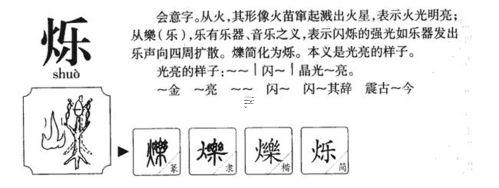 烁
shuò
会意字。从火,其形像火苗窜起溅出火星,表示火光明亮;
从樂(乐),乐有乐器、音乐之义,表示闪烁的强光如乐器发出
乐声向四周扩散。爍简化为烁。本义是光亮的样子。
光亮的样子:~~丨闪~丨晶光~亮。
~金 ~亮 ~~ 闪~ 闪~其辞 震古~今
爍 篆
爍 隶
爍 楷
烁 简